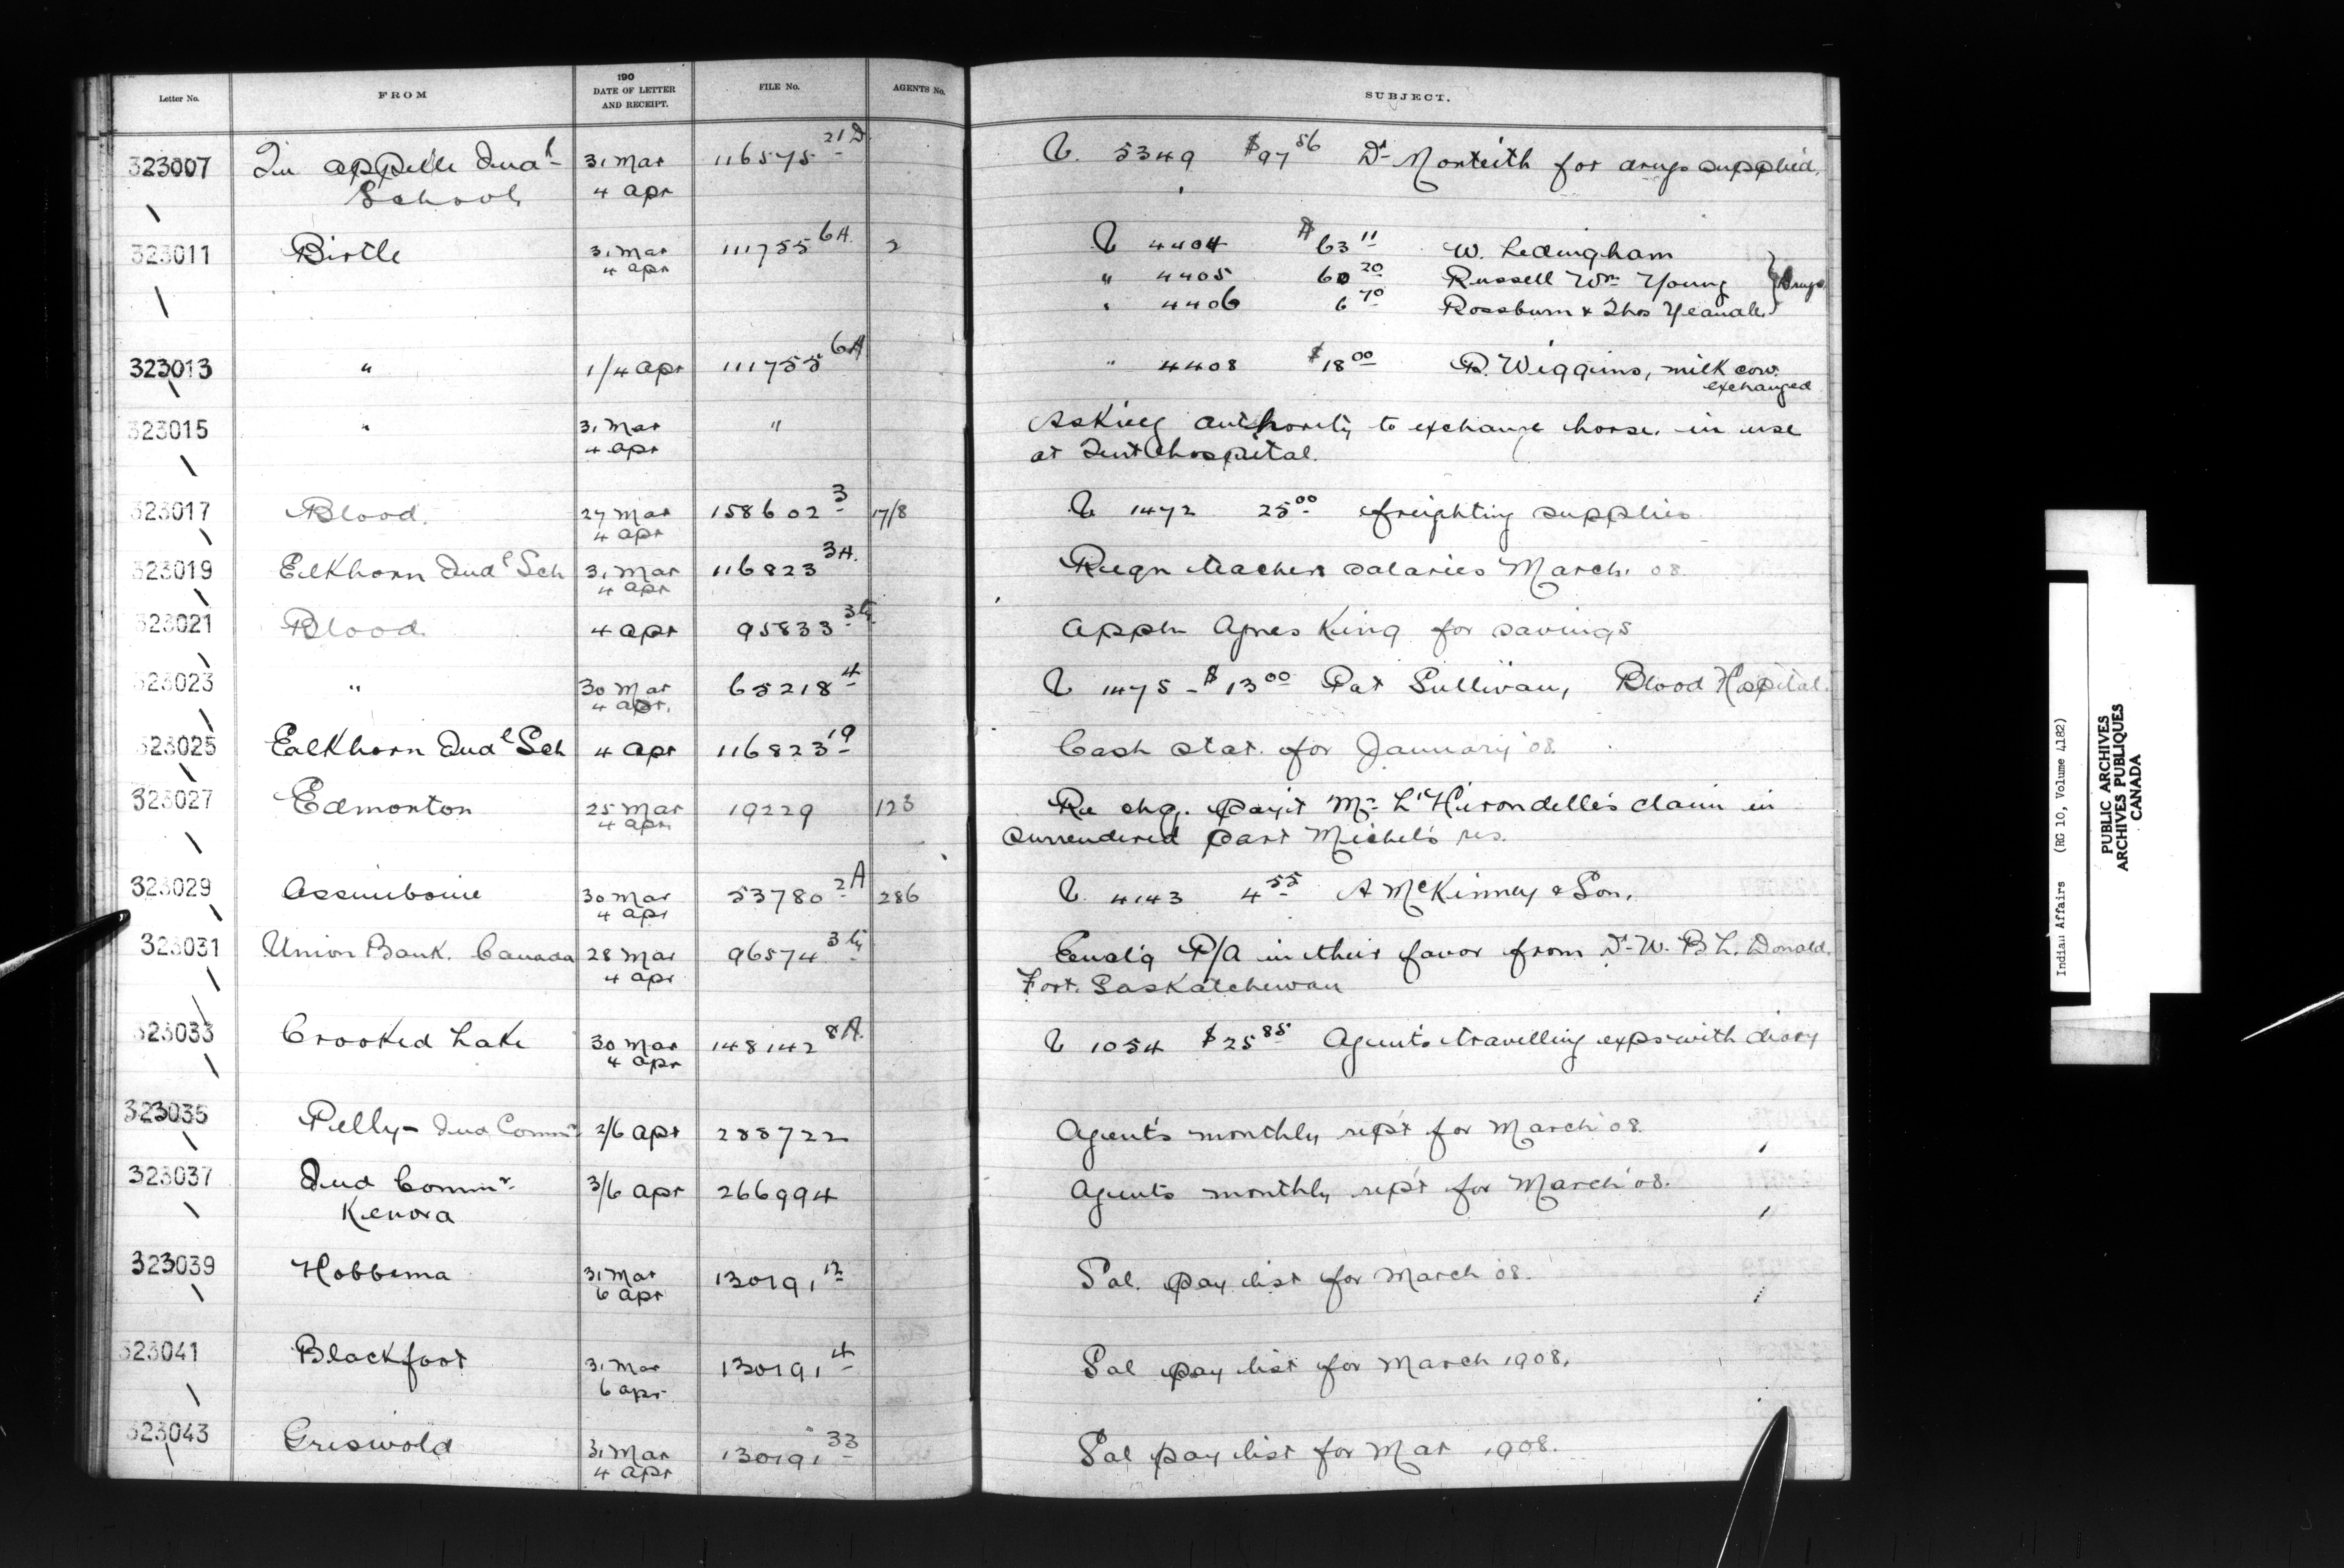 Letter No. FROM 190 DATE OF LETTER AND RECEIPT. FILE No. AGENTS No. SUBJECT.
323007 Qu appelle Indl School 31 Mar 4 apr 116575 21D V. 5349 $97 56 Dr Monteith for drugs supplied.
323011 Birtle 31 Mar 4 apr 111755 6A. 2 V 4404 $63 11 W. Ledingham
" 4405 60 20 Russell Wm Young } Drugs
" 4406 6 70 Rossburn & Thos Yeandle
323013 " 1/4 apr 111755 6A " 4408 $18 00 R. Wiggins, milk cow. exchanged
323015 " 31 Mar 4 apr " Asking authority to exchange horse. in use
at Tent hospital.
323017 Blood. 27 Mar 4 apr 158602 3 17/8 V 1472 25 00 freighting supplies
323019 Elkhorn Indl Sch 31 Mar 4 apr 116823 3A. Reqn teachers salaries March. 08
323021 Blood 4 apr 95833 appln Agnes King for savings
323023 " 30 Mar 4 apr. 65218 4 V 1475 - $13 00 Pat Sullivan, Blood Hospital.
323025 Elkhorn Indl Sch 4 apr 116823 19 Cash stat. for January '08.
323027 Edmonton 25 Mar 4 apr 19229 123 Re chq. payt Mr L'Hirondelle's claim in
surrendered part Michel's res.
323029 Assiniboine 30 Mar 4 apr 53780 2A 286 V. 4143 4 55 A McKinney & Son.
323031 Union Bank. Canada 28 Mar 4 apr 96574 Encl'g P/A in their favor from Dr W. B L. Donald.
Fort. Saskatchewan
323033 Crooked Lake 30 Mar 4 apr 148142 8A. V 1054 $25 85 Agent's travelling exps with diary
323035 Pelly - Ind Commr 2/6 apr 288722 Agent's monthly rep't for March '08.
323037 Ind Commr Kenora 3/6 apr 266994 Agents monthly rep't for March '08.
323039 Hobbema 31 Mar 6 apr 130191 12 Sal. pay list for March '08.
323041 Blackfoot 31 Mar 6 apr 130191 4 Sal pay list for March 1908.
323043 Griswold 31 Mar 4 apr 130191 33 Sal pay list for Mar 1908.
Indian Affairs (RG 10, Volume 4182)
PUBLIC ARCHIVES
ARCHIVES PUBLIQUES
CANADA